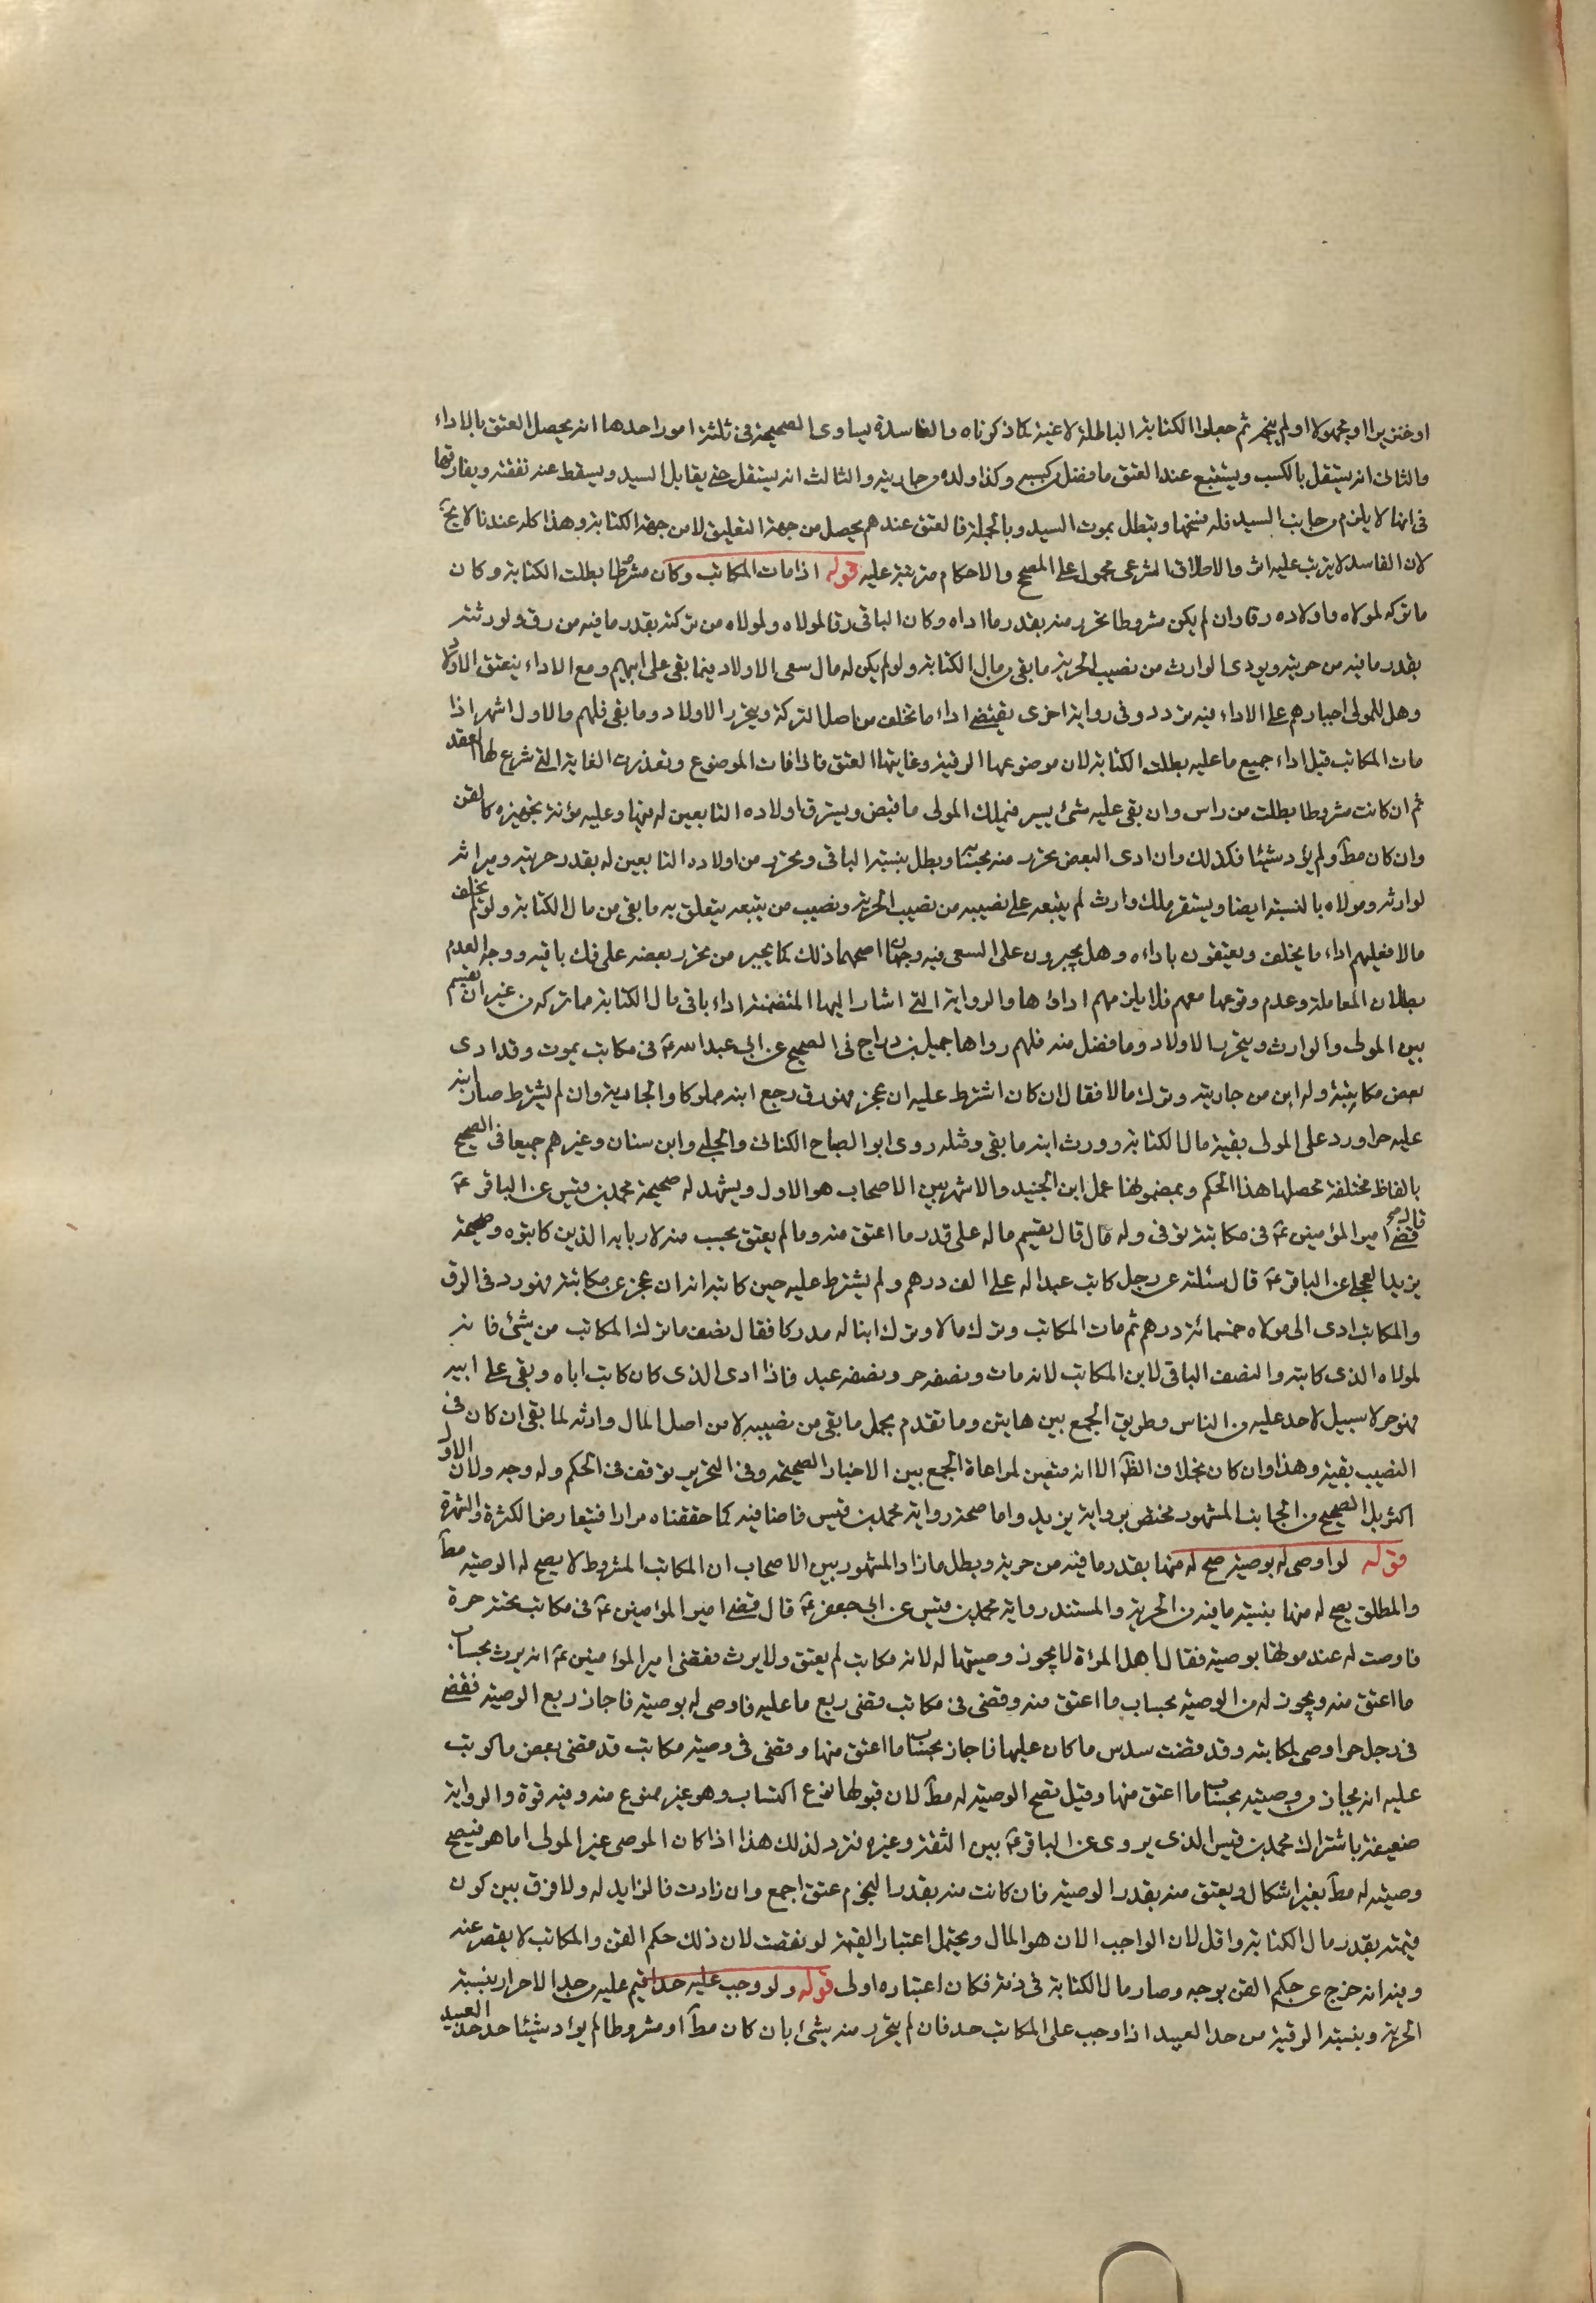 او خنزيرا او مجهولا او لم ينجم ثم جعلوا الكتابة الباطلة لاغية كما ذكرناه والفاسدة يساوى الصحيحة فى ثلثة امور احدها انه يحصل العتق بالاداء
والثانى انه يستقل بالكسب ويستتبع عند العتق ما فضل من كسبه وكذا ولده من جاريته والثالث انه يستقل حتى يقابل السيد ويسقط عنه نفقته ويفارقها
فى انها لا يلزم من جانب السيد فله فسخها وتبطل بموت السيد وبالجملة فالعتق عندهم يحصل من جهة التعليق لا من جهة الكتابة وهذا كله عندنا لا يجئ
لان الفاسد لا يترتب عليه اثر والاطلاق الشرعى محمول على الصحيح والاحكام مترتبة عليه قوله اذا مات المكاتب وكان مشروطا بطلت الكتابة وكان
ما تركه لمولاه واولاده رقا وان لم يكن مشروطا تحرر منه بقدر ما اداه وكان الباقى رقا لمولاه ولمولاه من تركته بقدر ما فيه من رق ولورثته
بقدر ما فيه من حرية ويودى الوارث من نصيب الحرية ما بقى من مال الكتابة ولو لم يكن له مال سعى الاولاد فيما بقى على ابيهم ومع الاداء ينعتق الاولاد
وهل للمولى اجبارهم على الاداء فيه تردد وفى رواية اخرى يقتضى اداء ما تخلف من اصل التركة ويتحرر الاولاد وما بقى فلهم والاول اشهر اذا
مات المكاتب قبل اداء جميع ما عليه بطلت الكتابة لان موضوعها الرقبة وغايتها العتق فاذا فات الموضوع وتعذرت الغاية التى شرع لها العقد
ثم ان كانت مشروطا بطلت من راس وان بقى عليه شئ يسير فيملك المولى ما قبض ويسترق اولاده التابعين له فيها وعليه مؤنة تجهيزه كالقن
وان كان مطلقا ولم يؤد شيئا فكذلك وان ادى البعض تحرر منه بحسابه وبطل بنسبة الباقى وتحرر من اولاده التابعين له بقدر حريته وميراثه
لوارثه ومولاه بالنسبة ايضا ويستقر ملك وارث لم يتبعه على نصيبه من نصيب الحرية ونصيب من يتبعه يتعلق به ما بقى من مال الكتابة ولو لم يخلف
مالا فعليهم اداء ما يخلف ويعتقون باداءه وهل يجبرون على السعى فيه وجهان اصحهما ذلك كما يجبر من تحرر بعضه على فك باقيه ووجه العدم
بطلان المعاملة وعدم وقوعها معهم فلا يلزمهم اداؤها والرواية التى اشار اليها المتضمنة اداء باقى مال الكتابة مما تركه من غير ان يقسم
بين المولى والوارث ويتحرر الاولاد وما فضل منه فلهم رواها جميل بن دراج فى الصحيح عن ابى عبد الله ع فى مكاتب يموت وقد ادى
بعض مكاتبته وله ابن من جاريته وترك مالا فقال ان كان اشترط عليه ان عجز فهو رق رجع ابنه مملوكا والجارية وان لم يشترط صار ابنه
عليه حرا ورد على المولى بقية مال الكتابة وورث ابنه ما بقى ومثله روى ابو الصباح الكنانى والحلبى وابن سنان وغيرهم جميعا فى الصحيح
بالفاظ مختلفة محصلها هذا الحكم وبمضمونها عمل ابن الجنيد والاشهر بين الاصحاب هو الاول ويشهد له صحيحة محمد بن قيس عن الباقر ع
قال قضى امير المؤمنين ع فى مكاتبة توفى وله مال قال يقسم ماله على قدر ما اعتق منه وما لم يعتق يحسب منه لاربابه الذين كاتبوه وصحيحة
بريد العجلى عن الباقر ع قال سئلته عن رجل كاتب عبدا له على الف درهم ولم يشترط عليه حين كاتبه انه ان عجز عن مكاتبته فهو رد فى الرق
والمكاتب ادى الى مولاه خمسمائة درهم ثم مات المكاتب وترك مالا وترك ابنا له مدركا فقال نصف ما ترك المكاتب من شئ فانه
لمولاه الذى كاتبه والنصف الباقى لابن المكاتب لانه مات ونصفه حر ونصفه عبد فاذا ادى الذى كان كاتب اباه وبقى على ابيه
فهو حر لا سبيل لاحد عليه من الناس وطريق الجمع بين هاتين وما تقدم بحمل ما بقى من نصيبه لا من اصل المال وارثه لما بقى ان كان فى
النصيب بقية وهذا وان كان بخلاف الظاهر الا انه متعين لمراعاة الجمع بين الاخبار الصحيحة وفى التحرير توقف فى الحكم وله وجه ولان الاول
اكثر بل الصحيح من الجانب المشهور مختص برواية بريد واما صحة رواية محمد بن قيس فاضافية كما حققناه مرارا فيتعارض الكثرة والشهرة
قوله لو اوصى له بوصية صح له منها بقدر ما فيه من حرية وبطل ما زاد المشهور بين الاصحاب ان المكاتب المشروط لا يصح له الوصية مطلقا
والمطلق يصح له منها بنسبة ما فيه من الحرية والمستند رواية محمد بن قيس عن ابى جعفر ع قال قضى امير المؤمنين ع فى مكاتب تحته حرة
فاوصت له عند موتها بوصية فقال اهل المراة لا يجوز وصيتها له لانه مكاتب لم يعتق ولا يرث فقضى امير المؤمنين ع انه يرث بحساب
ما اعتق منه ويجوز له من الوصية بحساب ما اعتق منه وقضى فى مكاتب قضى ربع ما عليه فاوصى له بوصية فاجاز ربع الوصية فقضى
فى رجل حر اوصى لمكاتبه وقد قضت سدس ما كان عليها فاجاز بحساب ما اعتق منها وقضى فى وصية مكاتب قد قضى بعض ما كوتب
عليه انه يجاز من وصيته بحساب ما اعتق منها وقيل تصح الوصية له مطلقا لان قبولها نوع اكتساب وهو غير ممنوع منه وفيه قوة والرواية
ضعيفة باشتراك محمد بن قيس الذى يروى عن الباقر ع بين الثقة وغيره فترد لذلك هذا اذا كان الموصى غير المولى اما هو فيصح
وصيته له مطلقا بغير اشكال ويعتق منه بقدر الوصية فان كانت منه بقدر النجوم عتق اجمع وان زادت فالزايد له ولا فرق بين كون
قيمته بقدر مال الكتابة واقل لان الواجب الان هو المال ويحتمل اعتبار القيمة لو نقصت لان ذلك حكم القن والمكاتب لا يقصر عنه
وفيه انه خرج عن حكم القن بوجه وصار مال الكتابة فى ذمته فكان اعتباره اولى قوله ولو وجب عليه حد اقيم عليه من حد الاحرار بنسبة
الحرية وبنسبة الرقية من حد العبيد اذا وجب على المكاتب حد فان لم يتحرر منه بشئ بان كان مطلقا او مشروطا لم يؤد شيئا حد حد العبيد